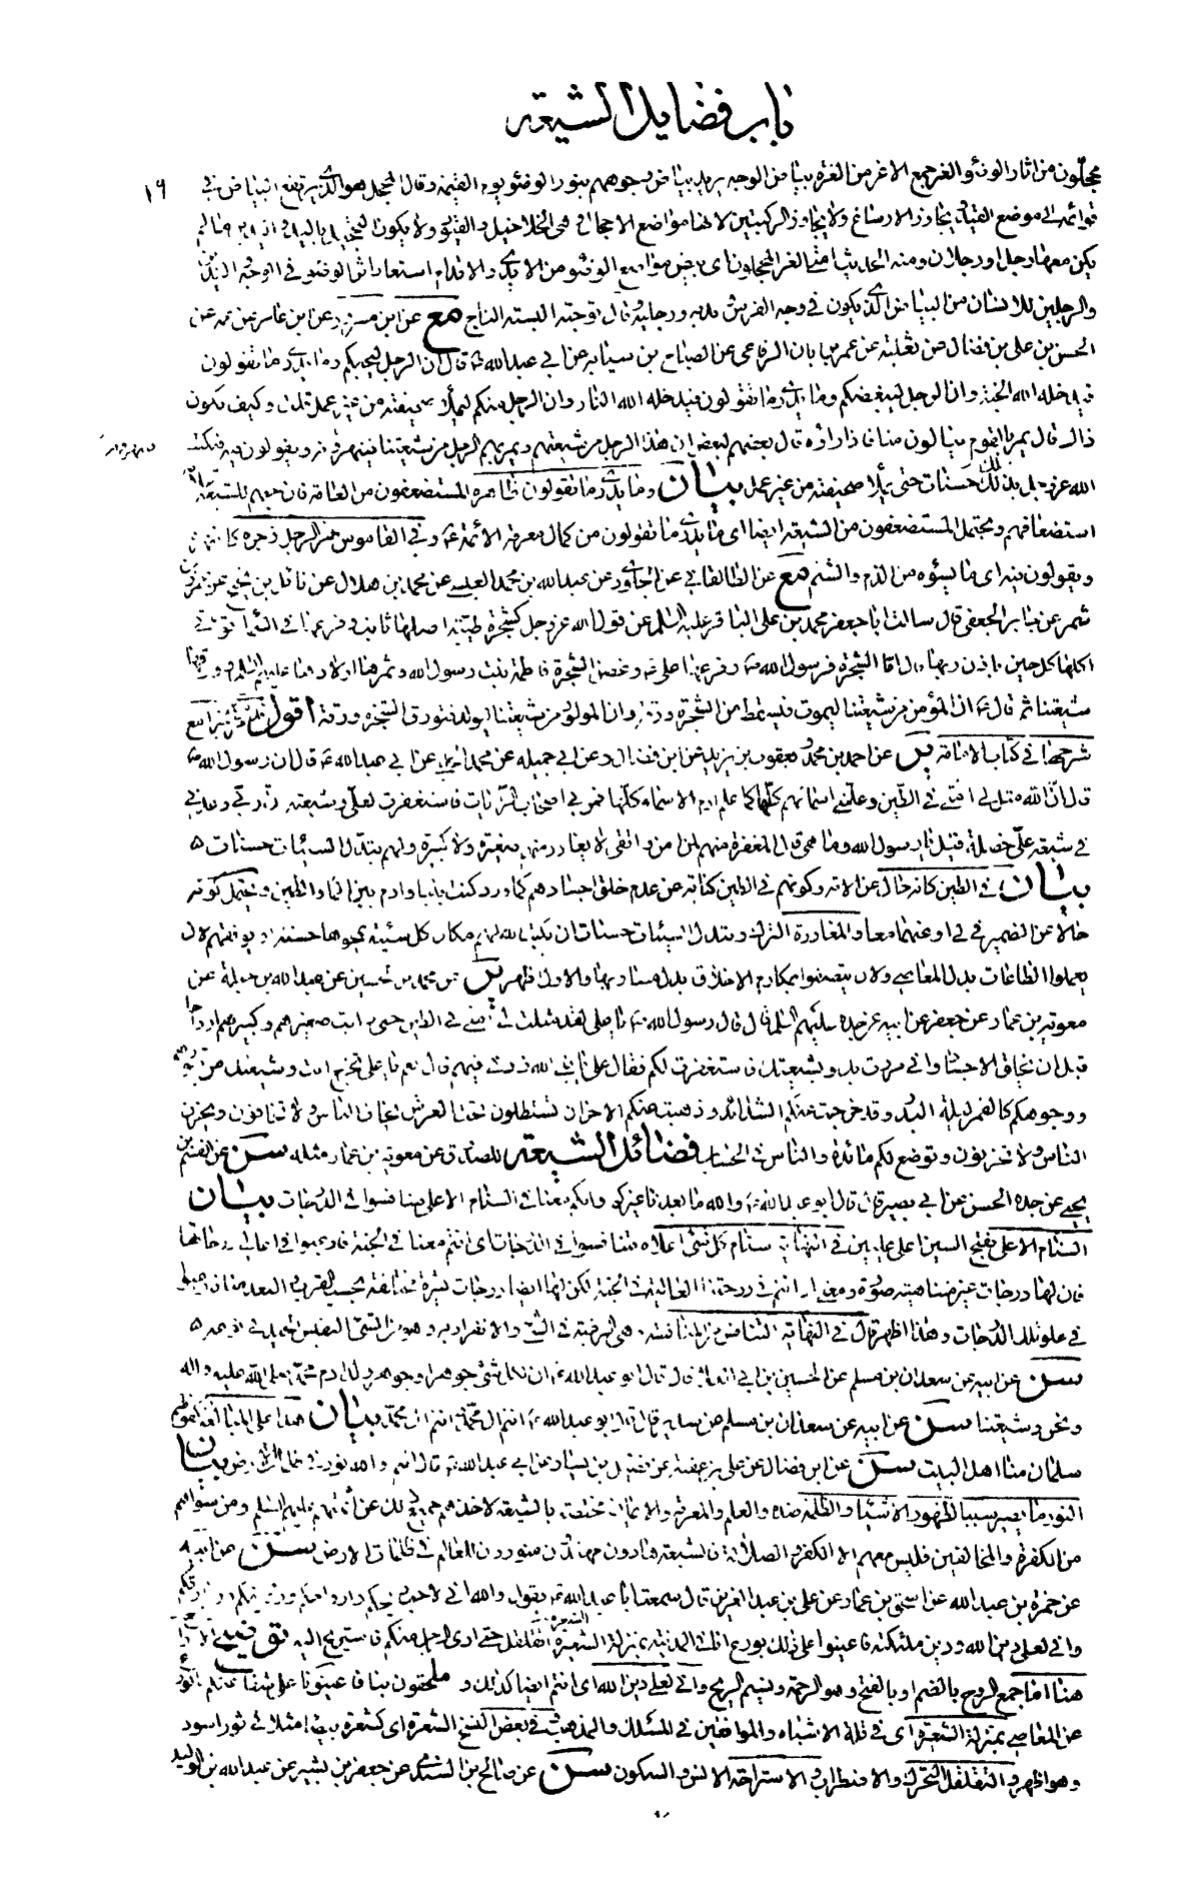 باب فضايل الشيعة
١٩
محجلون من اثار الوضوء و الغر جمع الاغر من الغرة بياض الوجه يريد بياض وجوههم بنور الوضوء يوم القيمة و قال المحجل هو الذي يرتفع البياض في
قوائمه الى موضع القيد و يجاوز الارساغ ولا يجاوز الركبتين لانها مواضع الاحجال و هي الخلاخيل و القيود ولا يكون التحجيل باليد و اليدين ما لم
يكن معها رجل او رجلان و منه الحديث امتي الغر المحجلون اي بيض مواضع الوضوء من الايدي و الاقدام استعار اثر الوضوء في الوجه و اليدين
والرجلين للانسان من البياض الذي يكون في وجه الفرس و يديه و رجليه و قال توجته البسته التاج مع عن ابن مسرور عن ابن عامر عن عمه عن
الحسن بن علي بن فضال عن ثعلبة عن عمر بن ابان الرفاعي عن الصباح بن سيابه عن ابي عبدالله ع قال ان الرجل ليحبكم وما يدري ما تقولون
فيدخله الله الجنة و ان الرجل ليبغضكم وما يدري ما تقولون فيدخله الله النار و ان الرجل منكم ليملأ صحيفته من غير عمل قلت و كيف يكون
ذاك قال يمر بالقوم ينالون منا فاذا راوه قال بعضهم لبعض ان هذا الرجل من شيعتهم و يمر بهم الرجل من شيعتنا فينهرونه و يقولون فيه فيكتب
الله عز وجل بذلك حسنات حتى يملأ صحيفته من غير عمل بيان وما يدري ما تقولون ظاهره المستضعفون من العامة فان حبهم للشيعة
استضعافهم و يحتمل المستضعفون من الشيعة ايضا اي ما يدري ما تقولون من كمال معرفة الائمة ع و في القاموس نهر الرجل زجره كانتهره
و يقولون فيه اي ما يسؤه من الذم والشتم مع عن الطالقاني عن الجلودي عن عبدالله بن محمد العبسي عن محمد بن هلال عن نائل بن نجيح عن عمرو بن
شمر عن جابر الجعفي قال سالت ابا جعفر محمد بن علي الباقر عليه السلام عن قول الله عز وجل كشجرة طيبة اصلها ثابت و فرعها في السماء تؤتي
اكلها كل حين باذن ربها قال اما الشجرة فرسول الله ص و فرعها علي ع و غصن الشجرة فاطمة بنت رسول الله و ثمرها اولادها عليهم السلام و ورقها
شيعتنا ثم قال ع ان المؤمن من شيعتنا ليموت فيسقط من الشجرة ورقة و ان المولود من شيعتنا ليولد فتورق الشجرة ورقة اقول
شرحها في كتاب الامامة ير عن احمد بن محمد و يعقوب بن يزيد عن ابن فضال عن ابي جميله عن محمد الحلبي عن ابي عبدالله ع قال ان رسول الله ص
قال ان الله مثل لي امتي في الطين و علمني اسمائهم كلها كما علم ادم الاسماء كلها فمر بي اصحاب الرايات فاستغفرت لعلي و شيعته ان ربي وعدني
في شيعة علي خصلة قيل يا رسول الله وما هي قال المغفرة منهم لمن امن و اتقى لا يغادر منهم صغيرة ولا كبيرة و لهم تبدل السيئات حسنات
بيان في الطين كانه حال عن الامة و كونهم في الطين كناية عن عدم خلق اجسادهم كما ورد كنت نبيا و ادم بين الماء والطين و يحتمل كونه
حالا عن الضمير في لي او عنهما معا و المغادرة الترك و تبدل السيئات حسنات ان يكتب الله لهم مكان كل سيئة يمحوها حسنة او يوفقهم لان
يعملوا الطاعات بدل المعاصي ولان يتصفوا بمكارم الاخلاق بدل مساويها والاول اظهر ير عن محمد بن الحسين عن عبدالله بن جبلة عن
معوية بن عمار عن جعفر عن ابيه عن جده عليهم السلم قال قال رسول الله ص يا علي لقد مثلت لي امتي في الطين حتى رايت صغيرهم و كبيرهم ارواحا
قبل ان تخلق الاجساد و اني مررت بك و بشيعتك فاستغفرت لكم فقال علي يا نبي الله زدني فيهم قال نعم يا علي تخرج انت و شيعتك من قبوركم
و وجوهكم كالقمر ليلة البدر و قد فرجت عنكم الشدائد و ذهبت عنكم الاحزان تستظلون تحت العرش يخاف الناس ولا تخافون و يحزن
الناس ولا تحزنون و توضع لكم مائدة والناس في الحساب فضائل الشيعة للصدوق عن معوية بن عمار مثله سن عن القسم بن
يحيى عن جده الحسن عن ابي بصير قال قال ابو عبدالله ع والله ما بعدنا غيركم و انكم معنا في السنام الاعلى فتنافسوا في الدرجات بيان
السنام الاعلى بفتح السين اعلى عليين في النهاية سنام كل شئ اعلاه فتنافسوا في الدرجات اي انتم معنا في الجنة فارغبوا في اعالي درجاتها
فان لها درجات غير متناهية صورة و معنى او انتم في درجتنا العالية في الجنة لكن لها ايضا درجات كثيرة مختلفة بحسب القرب و البعد
في علو تلك الدرجات و هذا اظهر قال في النهاية التنافس من المنافسة و هي الرغبة في الشئ والانفراد به و هو من الشئ النفيس الجيد في نوعه
سن عن ابيه عن سعدان بن مسلم عن الحسين بن ابي العلا قال قال ابو عبدالله ع ان لكل شئ جوهرا و جوهر ولد ادم محمد صلى الله عليه واله
و نحن و شيعتنا سن عن ابيه عن سعدان بن مسلم عن سدير قال قال ابو عبدالله ع انتم ال محمد انتم ال محمد بيان هذا على المبالغة
سلمان منا اهل البيت سن عن ابن فضال عن علي بن عقبة عن فضيل بن يسار عن ابي عبدالله ع قال انتم والله نور في ظلمات الارض بيان
النور ما يصير سببا لظهور الاشياء والظلمة ضده والعلم والمعرفة والايمان مختصة بالشيعة لاخذهم جميع ذلك عن ائمتهم عليهم السلم و من سواهم
من الكفرة والمخالفين فليس معهم الا الكفر و الضلالة فالشيعة هادون مهتدون منورون للعالم في ظلمات الارض سن عن ابيه
عن حمزة بن عبدالله عن اسحق بن عمار عن علي بن عبد العزيز قال سمعت ابا عبدالله ع يقول والله اني لاحب ريحكم و ارواحكم و رؤيتكم و زيارتكم
و اني لعلى دين الله و دين ملئكته فاعينوا على ذلك بورع انا في المدينة بمنزلة الشعيرة اتقلقل حتى ارى الرجل منكم فاستريح اليه توضيح
هنا اما جمع الروح بالضم او بالفتح و هو الرحمة و نسيم الريح و اني لعلى دين الله اي انتم ايضا كذلك و ملحقون بنا فاعينونا على شفاعتكم بالورع
عن المعاصي بمنزلة الشعيرة اي في قلة الاشباه والموافقين في المسلك والمذهب و في بعض النسخ الشعرة اي كشعرة بيضا مثلا في ثور اسود
و هو اظهر و التقلقل التحرك والاضطراب و الاستراحة الانس و السكون سن عن صالح بن السندي عن جعفر بن بشير عن عبدالله بن الوليد